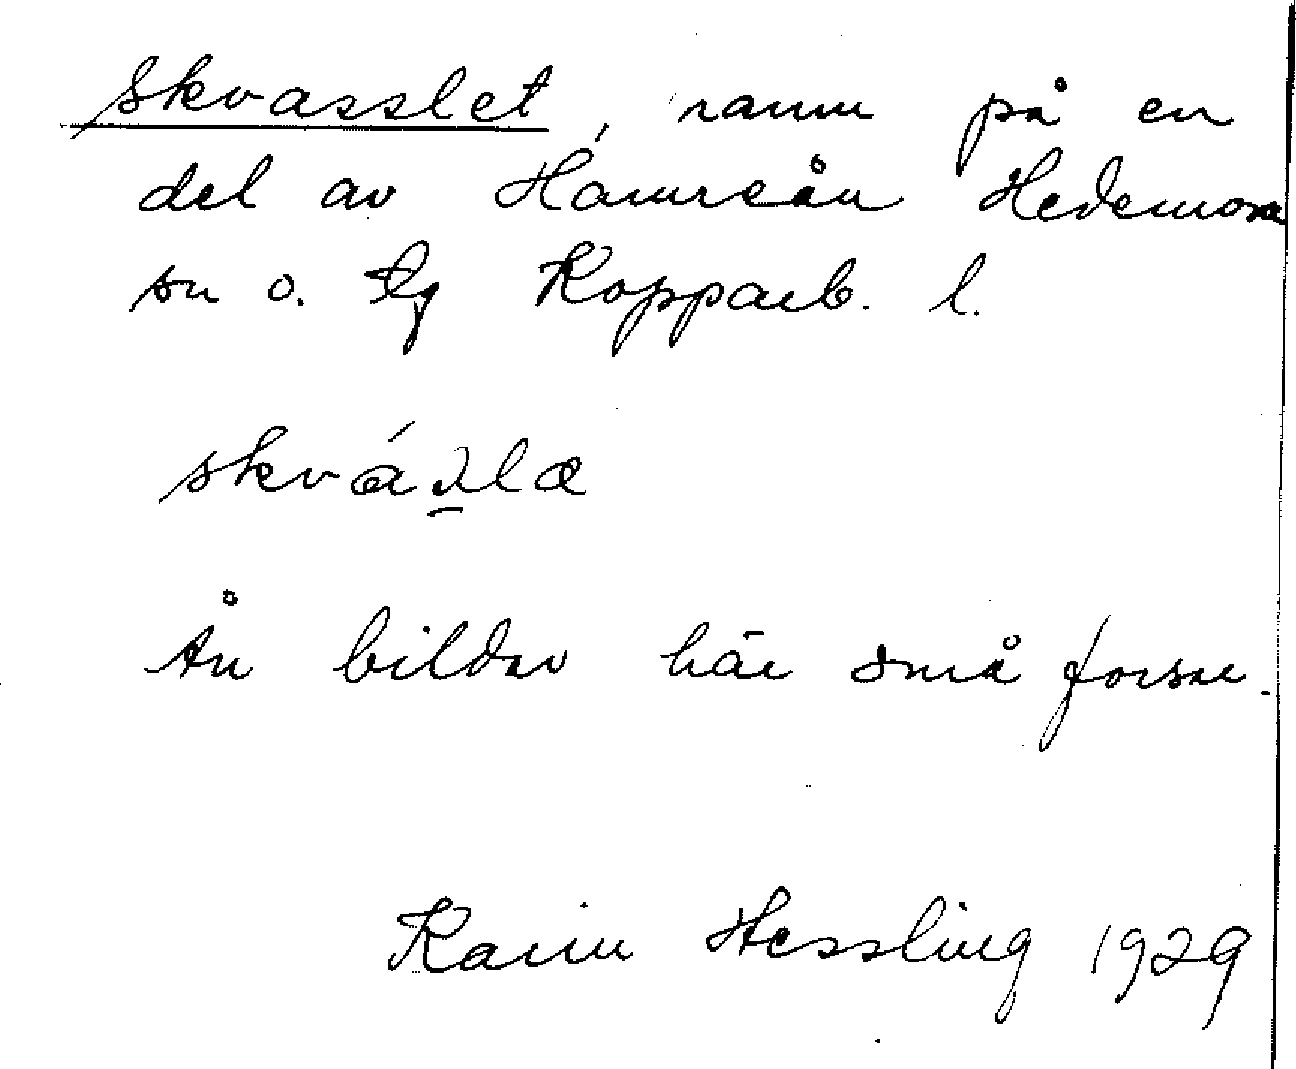 Skvasslet, namn på en
del av Hamreån Hedemora
sn o. tg Kopparb. l.
Ån bildar här små forsar.
Karin Hessling 1929